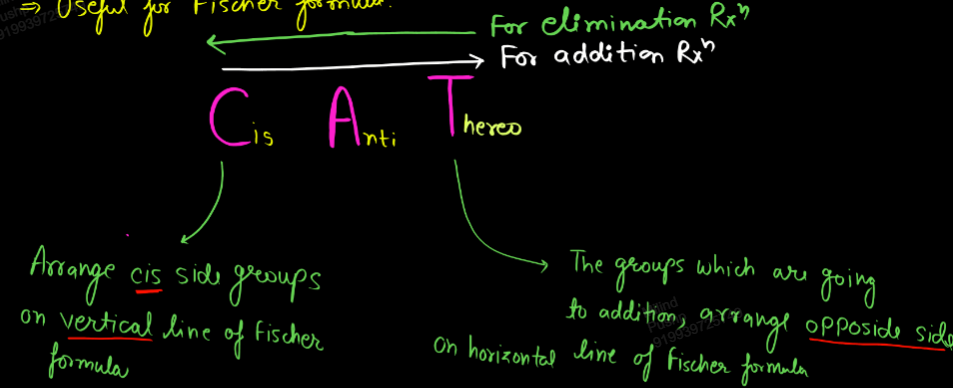 ⇒ Useful for Fischer formula.
For elimination Rxⁿ
For addition Rxⁿ
Cis Anti Thereo
Arrange cis side groups
on vertical line of Fischer
formula
The groups which are going
to addition, arrange opposide side
on horizontal line of Fischer formula